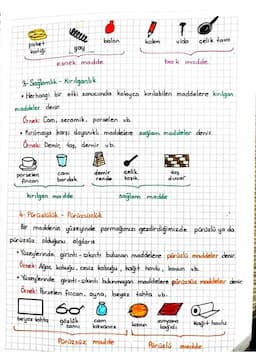 paket lastiği
yay
balon
kalem
vida
çelik tava
esnek madde
sert madde
3- Sağlamlık - Kırılganlık
• Herhangi bir etki sonucunda kolayca kırılabilen maddelere kırılgan
maddeler denir.
Örnek: Cam, seramik, porselen vb.
• Kırılmaya karşı dayanıklı maddelere sağlam maddeler denir.
Örnek: Demir, taş, demir vb.
porselen fincan
cam bardak
demir rende
çelik kaşık
taş duvar
kırılgan madde
sağlam madde
4- Pürüzlülük - Pürüzsüzlük
Bir maddenin yüzeyinde parmağımızı gezdirdiğimizde pürüzlü ya da
pürüzsüz olduğunu algılarız.
• Yüzeylerinde girinti - çıkıntı bulunan maddelere pürüzlü maddeler denir.
Örnek: Ağaç kabuğu, ceviz kabuğu, kağıt havlu, kavun vb.
• Yüzeylerinde girinti - çıkıntı bulunmayan maddelere pürüzsüz maddeler denir.
Örnek: Porselen fincan, ayna, beyaz tahta vb.
beyaz tahta
gözlük camı
cam kavanoz
kavun
zımpara kağıdı
kağıt havlu
Pürüzsüz madde
Pürüzlü madde